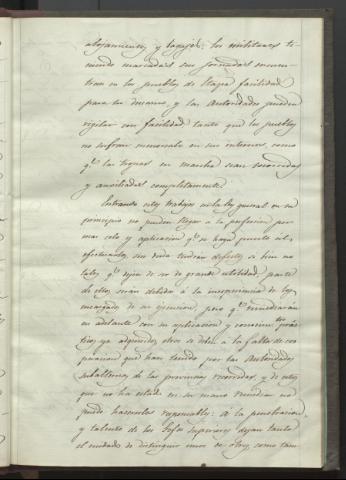 alojamientos y bagajes: los militares te-
niendo marcadas sus jornadas encuen-
tran en los pueblos de Etapa facilidad
para su descanso, y las Autoridades pueden
vigilar con facilidad tanto que los pueblos
no sufran menoscabo en sus intereses, como
qe. las tropas en marcha sean socorridas
y auxiliadas completamente.
Intrando estos trabajos en la ley general en su
principio no pueden llegar a la perfeccion por
mas celo y aplicacion qe. se haya puesto al
efectuarlos, sin duda tendran defectos si bien no
tales qe. dejen de ser de grande utilidad, parte
de ellos seran debidos a la inesperiencia de los
encargados de su ejecucion, pero qe. remediarán
en adelante con su aplicacion y conocimtos. prác-
ticos ya adquiridos, otros se deben a la falta de coo-
peracion que han tenido por las Autoridades
subalternas de las provincias recorridas, y de estos
que no ha estado en su mano remediar no
puede hacerseles responsables: a la penetracion
y talento de los Gefes superiores dejan tanto
el cuidado de distinguir unos de otros, como tam-